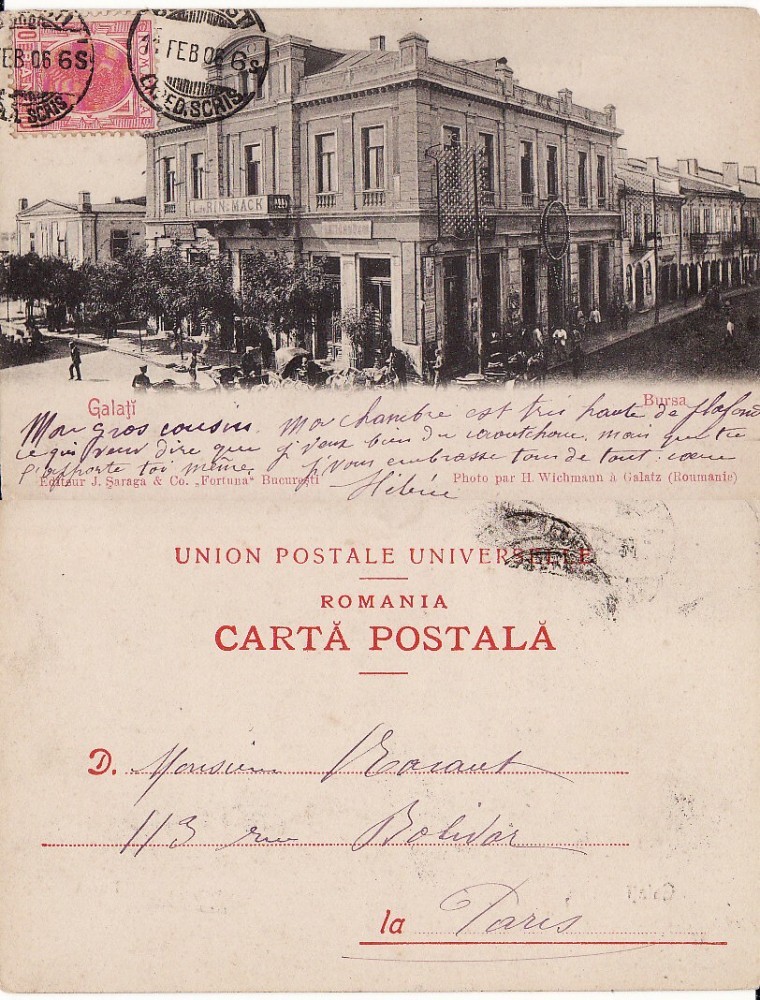 FEB 06 6S
FEB 06 6S
EXPED. SCRIS
MACK
Galați
Bursa
Mon gros cousin. Ma chambre est très haute de plafond
ce qui veut dire que je veux bien du caoutchouc, mais que tu
l'apporte toi même. Je vous embrasse tous de tout cœur
Editeur J. Șaraga & Co. „Fortuna" București
Photo par H. Wichmann à Galatz (Roumanie)
UNION POSTALE UNIVERSELLE
ROMANIA
CARTĂ POSTALĂ
D. Monsieur
113 rue Bolivar
la Paris